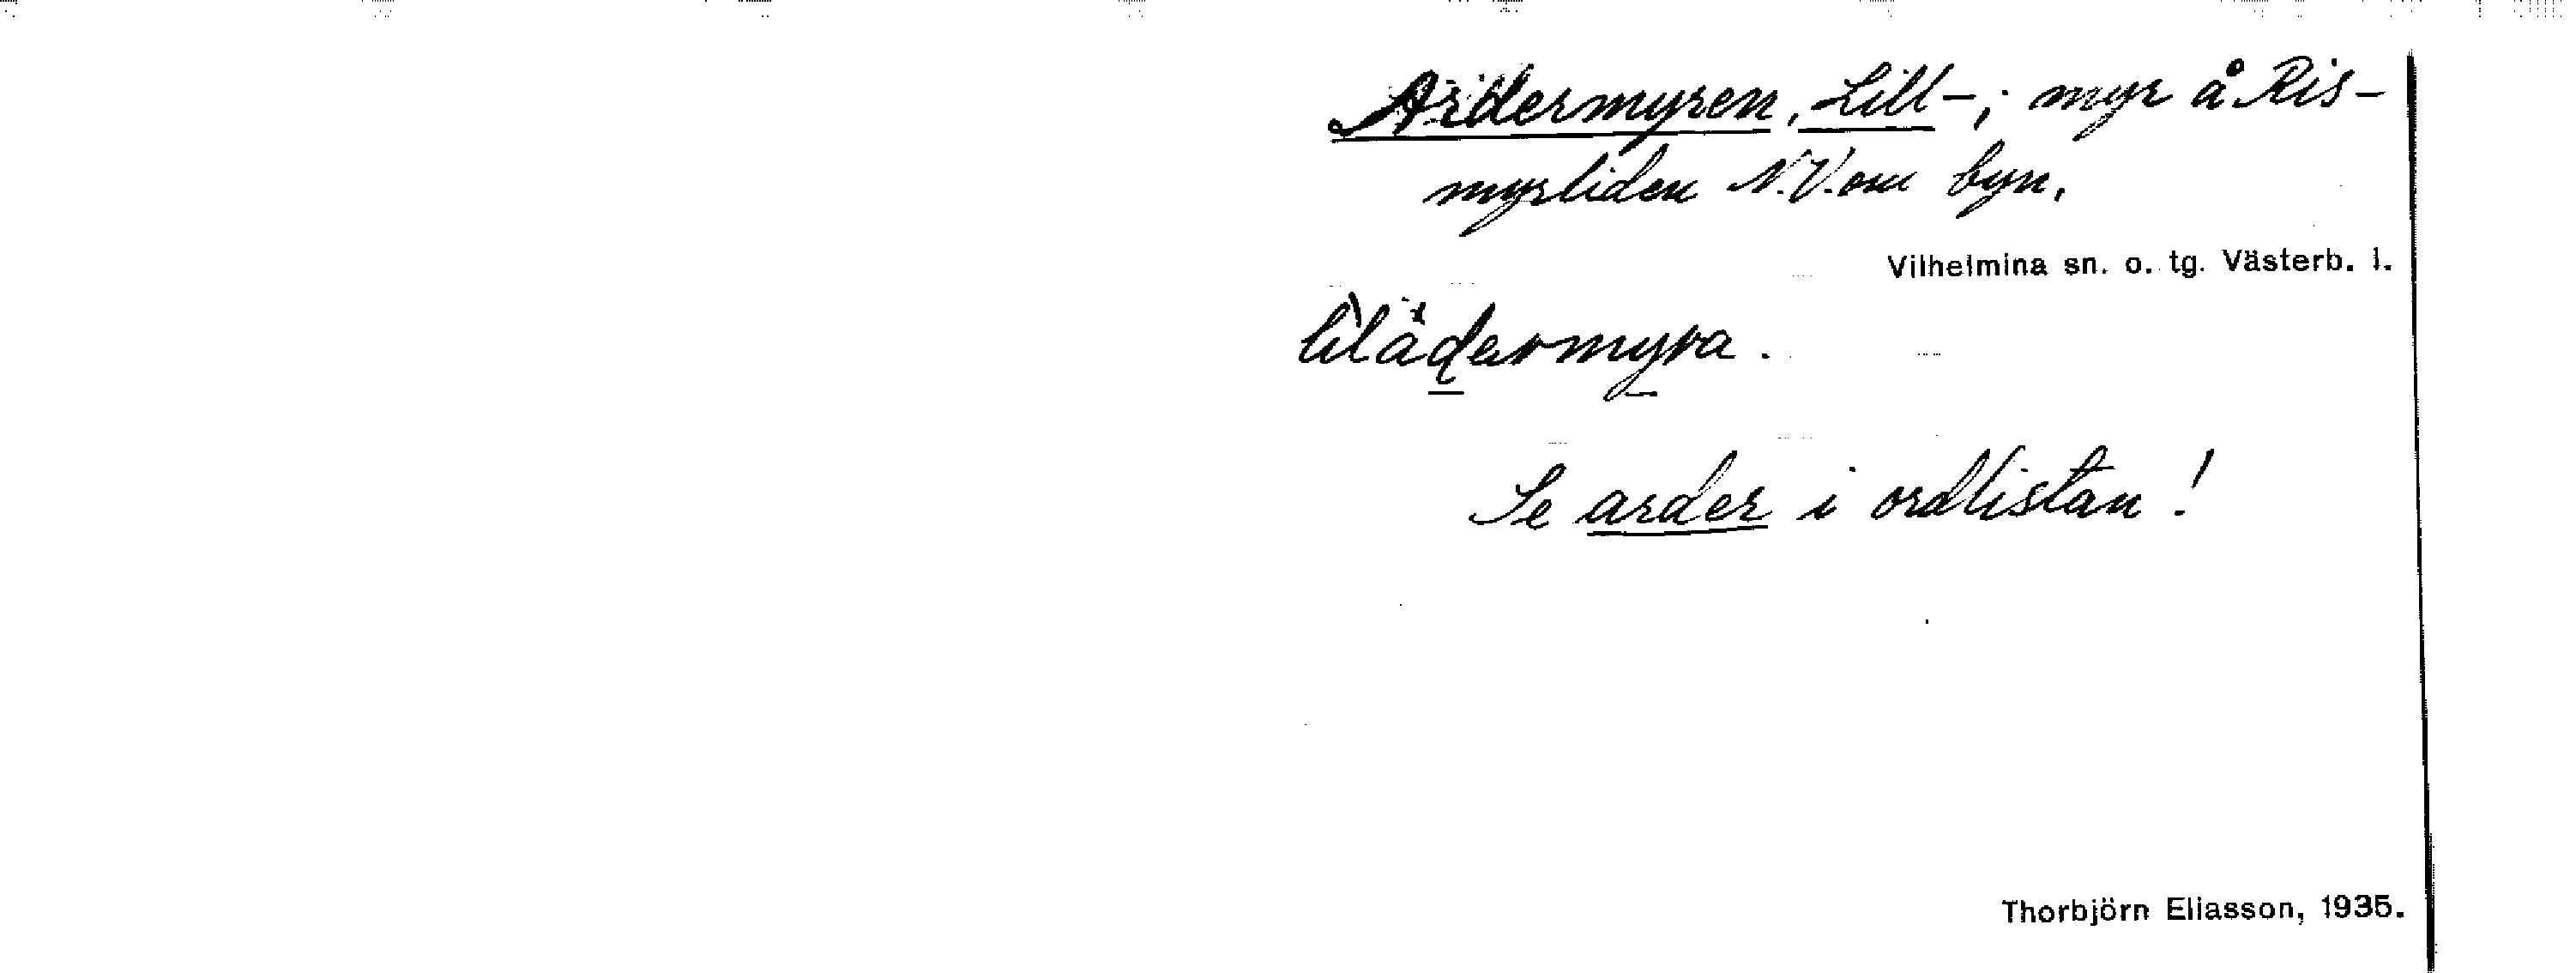 Ardermyren, Lill-; myr å Ris-
myrliden N.V. om byn.
Vilhelmina sn. o. tg. Västerb. l.
Se arder i ordlistan!
Thorbjörn Eliasson, 1935.